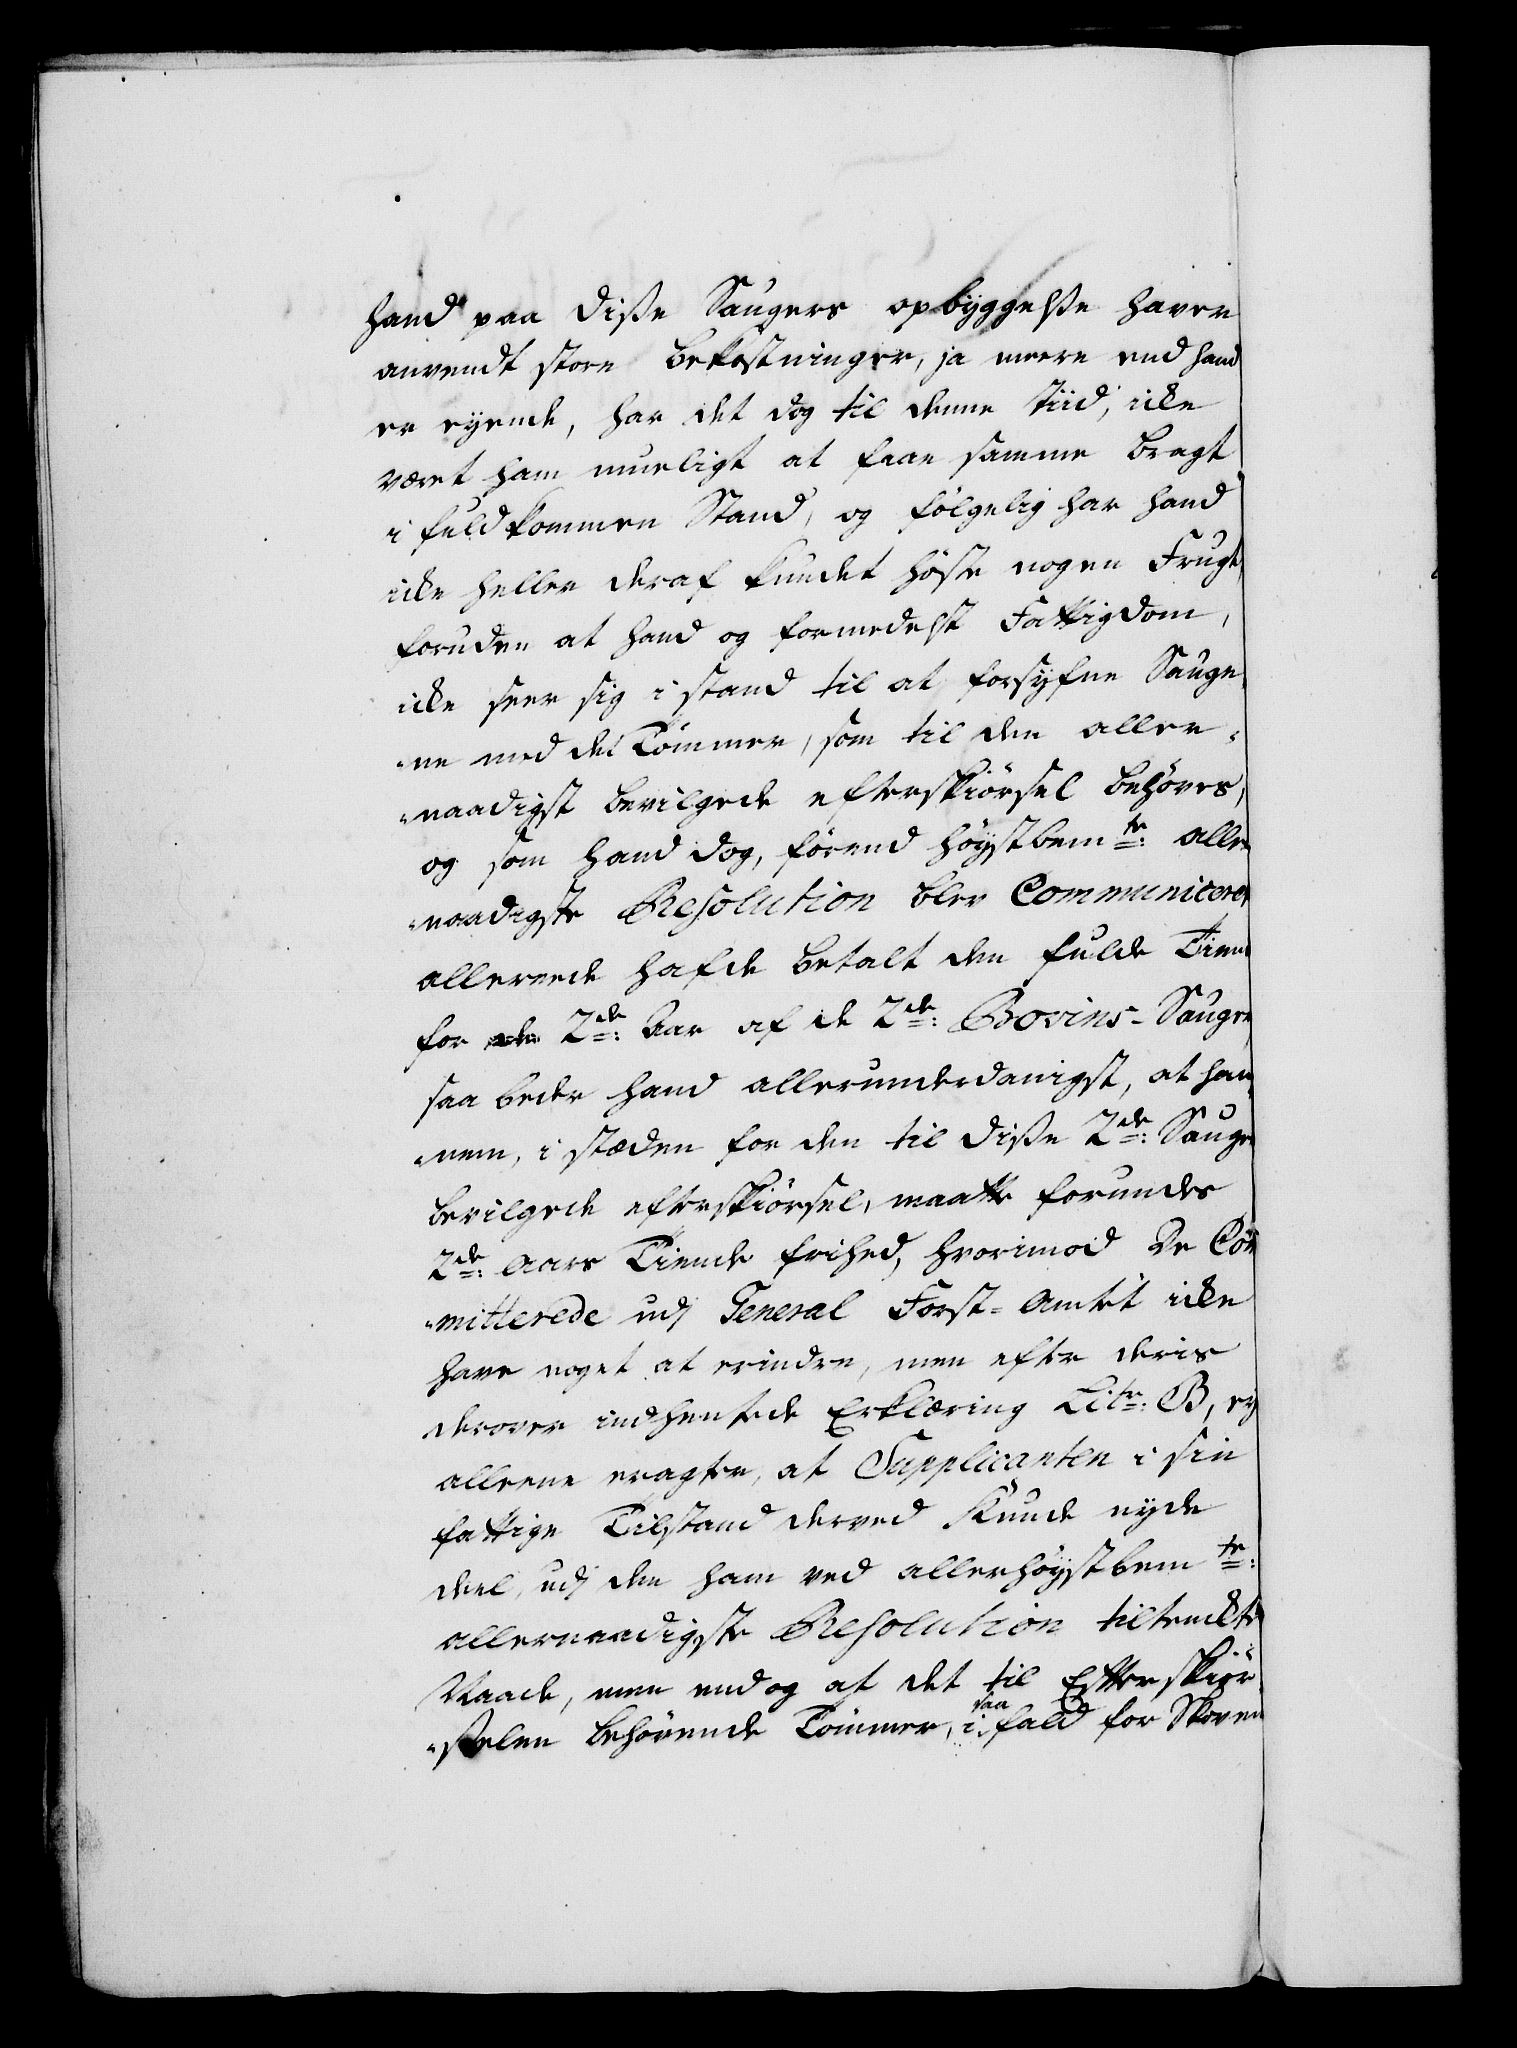 hand paa diße Saugers opbyggelse haver
anvendt store bekostninger, ja meere end hand
er eyende, har det dog til denne tiid, icke
været ham mueligt at faae samme bragt
i fuldkommen Stand, og følgelig har hand
icke heller deraf kundet høste nogen Frugt,
foruden at hand og formedelst Fattigdom,
icke seer sig i stand til at forsyfne Sauge¬
ne med det Tömmer, som til den aller¬
naadigst bevilgede efterskiörsel behöves,
og som hand dog, förend höystbemte: aller
naadigste Resolution blev Communiceret
allereede hafde betalt den fulde Tiende
for 2de: Aar af de 2de: Bovins-Sauger
saa beder hand allerunderdanigst, at han¬
nem, i stæden for den til diße 2de: Sauge
bevilgede efterskiörsel, maatte forundes
2de: Aars Tiende frihed, hvorimod De Com
mitterede udj General Forst-Amtet icke
have noget at erindre, men efter deris
derover indhentede Erklæring Litr: B, ey
alleene eragter, at Supplicanten i sin
fattige Tilstand derved kunde nyde
deel, udj den ham ved allerhöystbemte:
allernaadigste Resolution tiltenckte
Naade, men endog at det til Efterskiör
selen behövende Tömmer, i saa fald for Skoven